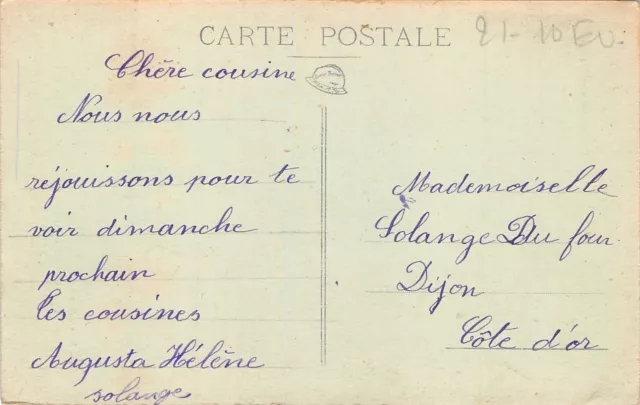 CARTE POSTALE
21- 10 Eu.
Chère cousine
Nous nous
réjouissons pour te
voir dimanche
prochain
les cousines
Augusta Hélène
solange
Mademoiselle
Solange Du four
Dijon
Côte d'or